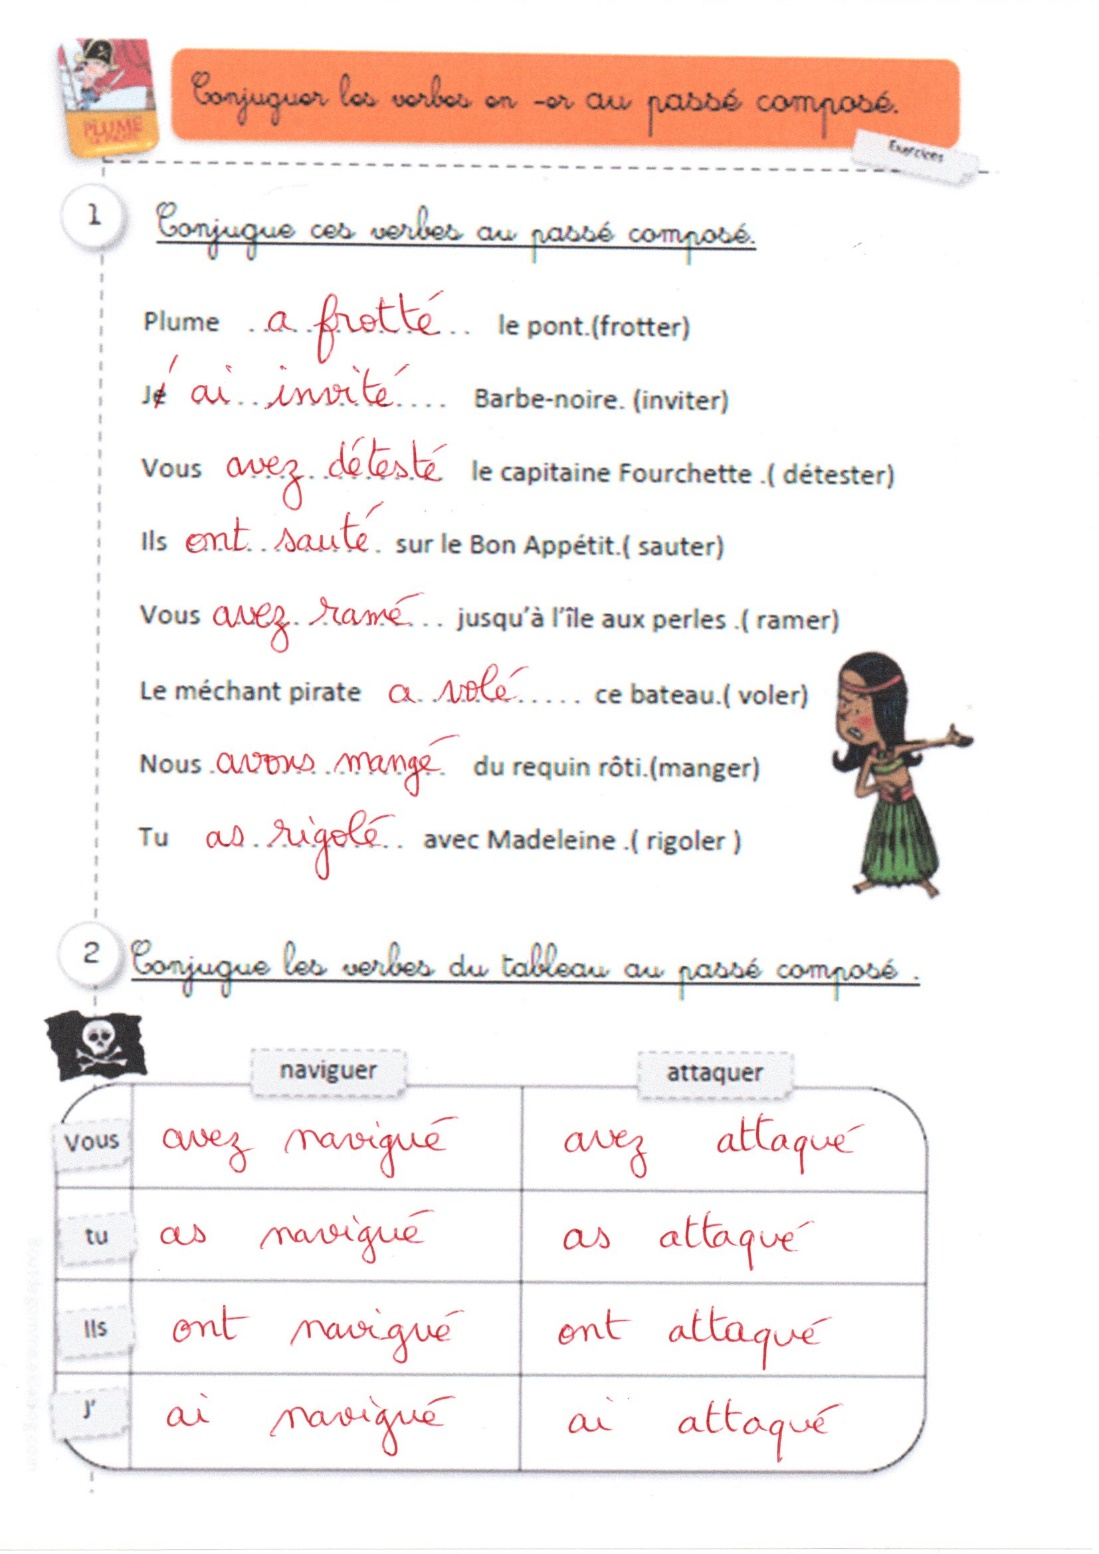 PLUME
Conjuguer les verbes en -er au passé composé.
Exercices
1 Conjugue ces verbes au passé composé.
Plume ..a frotté... le pont.(frotter)
J' ai...invité.... Barbe-noire. (inviter)
Vous avez détesté le capitaine Fourchette .( détester)
Ils ont sauté. sur le Bon Appétit.( sauter)
Vous avez ramé... jusqu'à l'île aux perles .( ramer)
Le méchant pirate a volé..... ce bateau.( voler)
Nous .avons mangé du requin rôti.(manger)
Tu as rigolé.. avec Madeleine .( rigoler )
2 Conjugue les verbes du tableau au passé composé .
naviguer attaquer
Vous avez navigué avez attaqué
tu as navigué as attaqué
Ils ont navigué ont attaqué
J' ai navigué ai attaqué